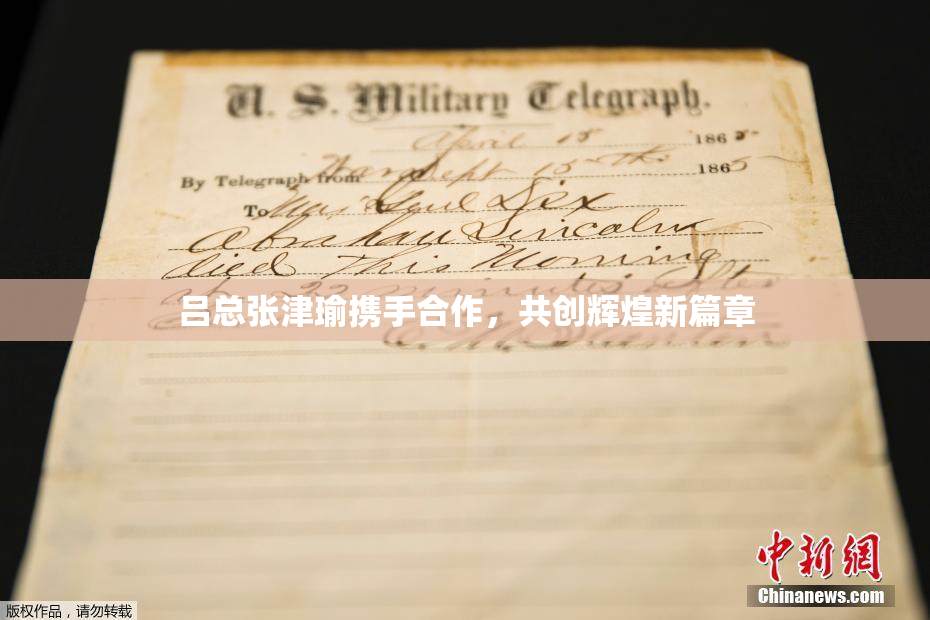 U. S. Military Telegraph.
April 15 1865
By Telegraph from War Dept 15th 1865
To Maj Genl Dix
Abraham Lincoln
died This Morning
at 22 minutes after
吕总张津瑜携手合作，共创辉煌新篇章
中新网
Chinanews.com
版权作品，请勿转载